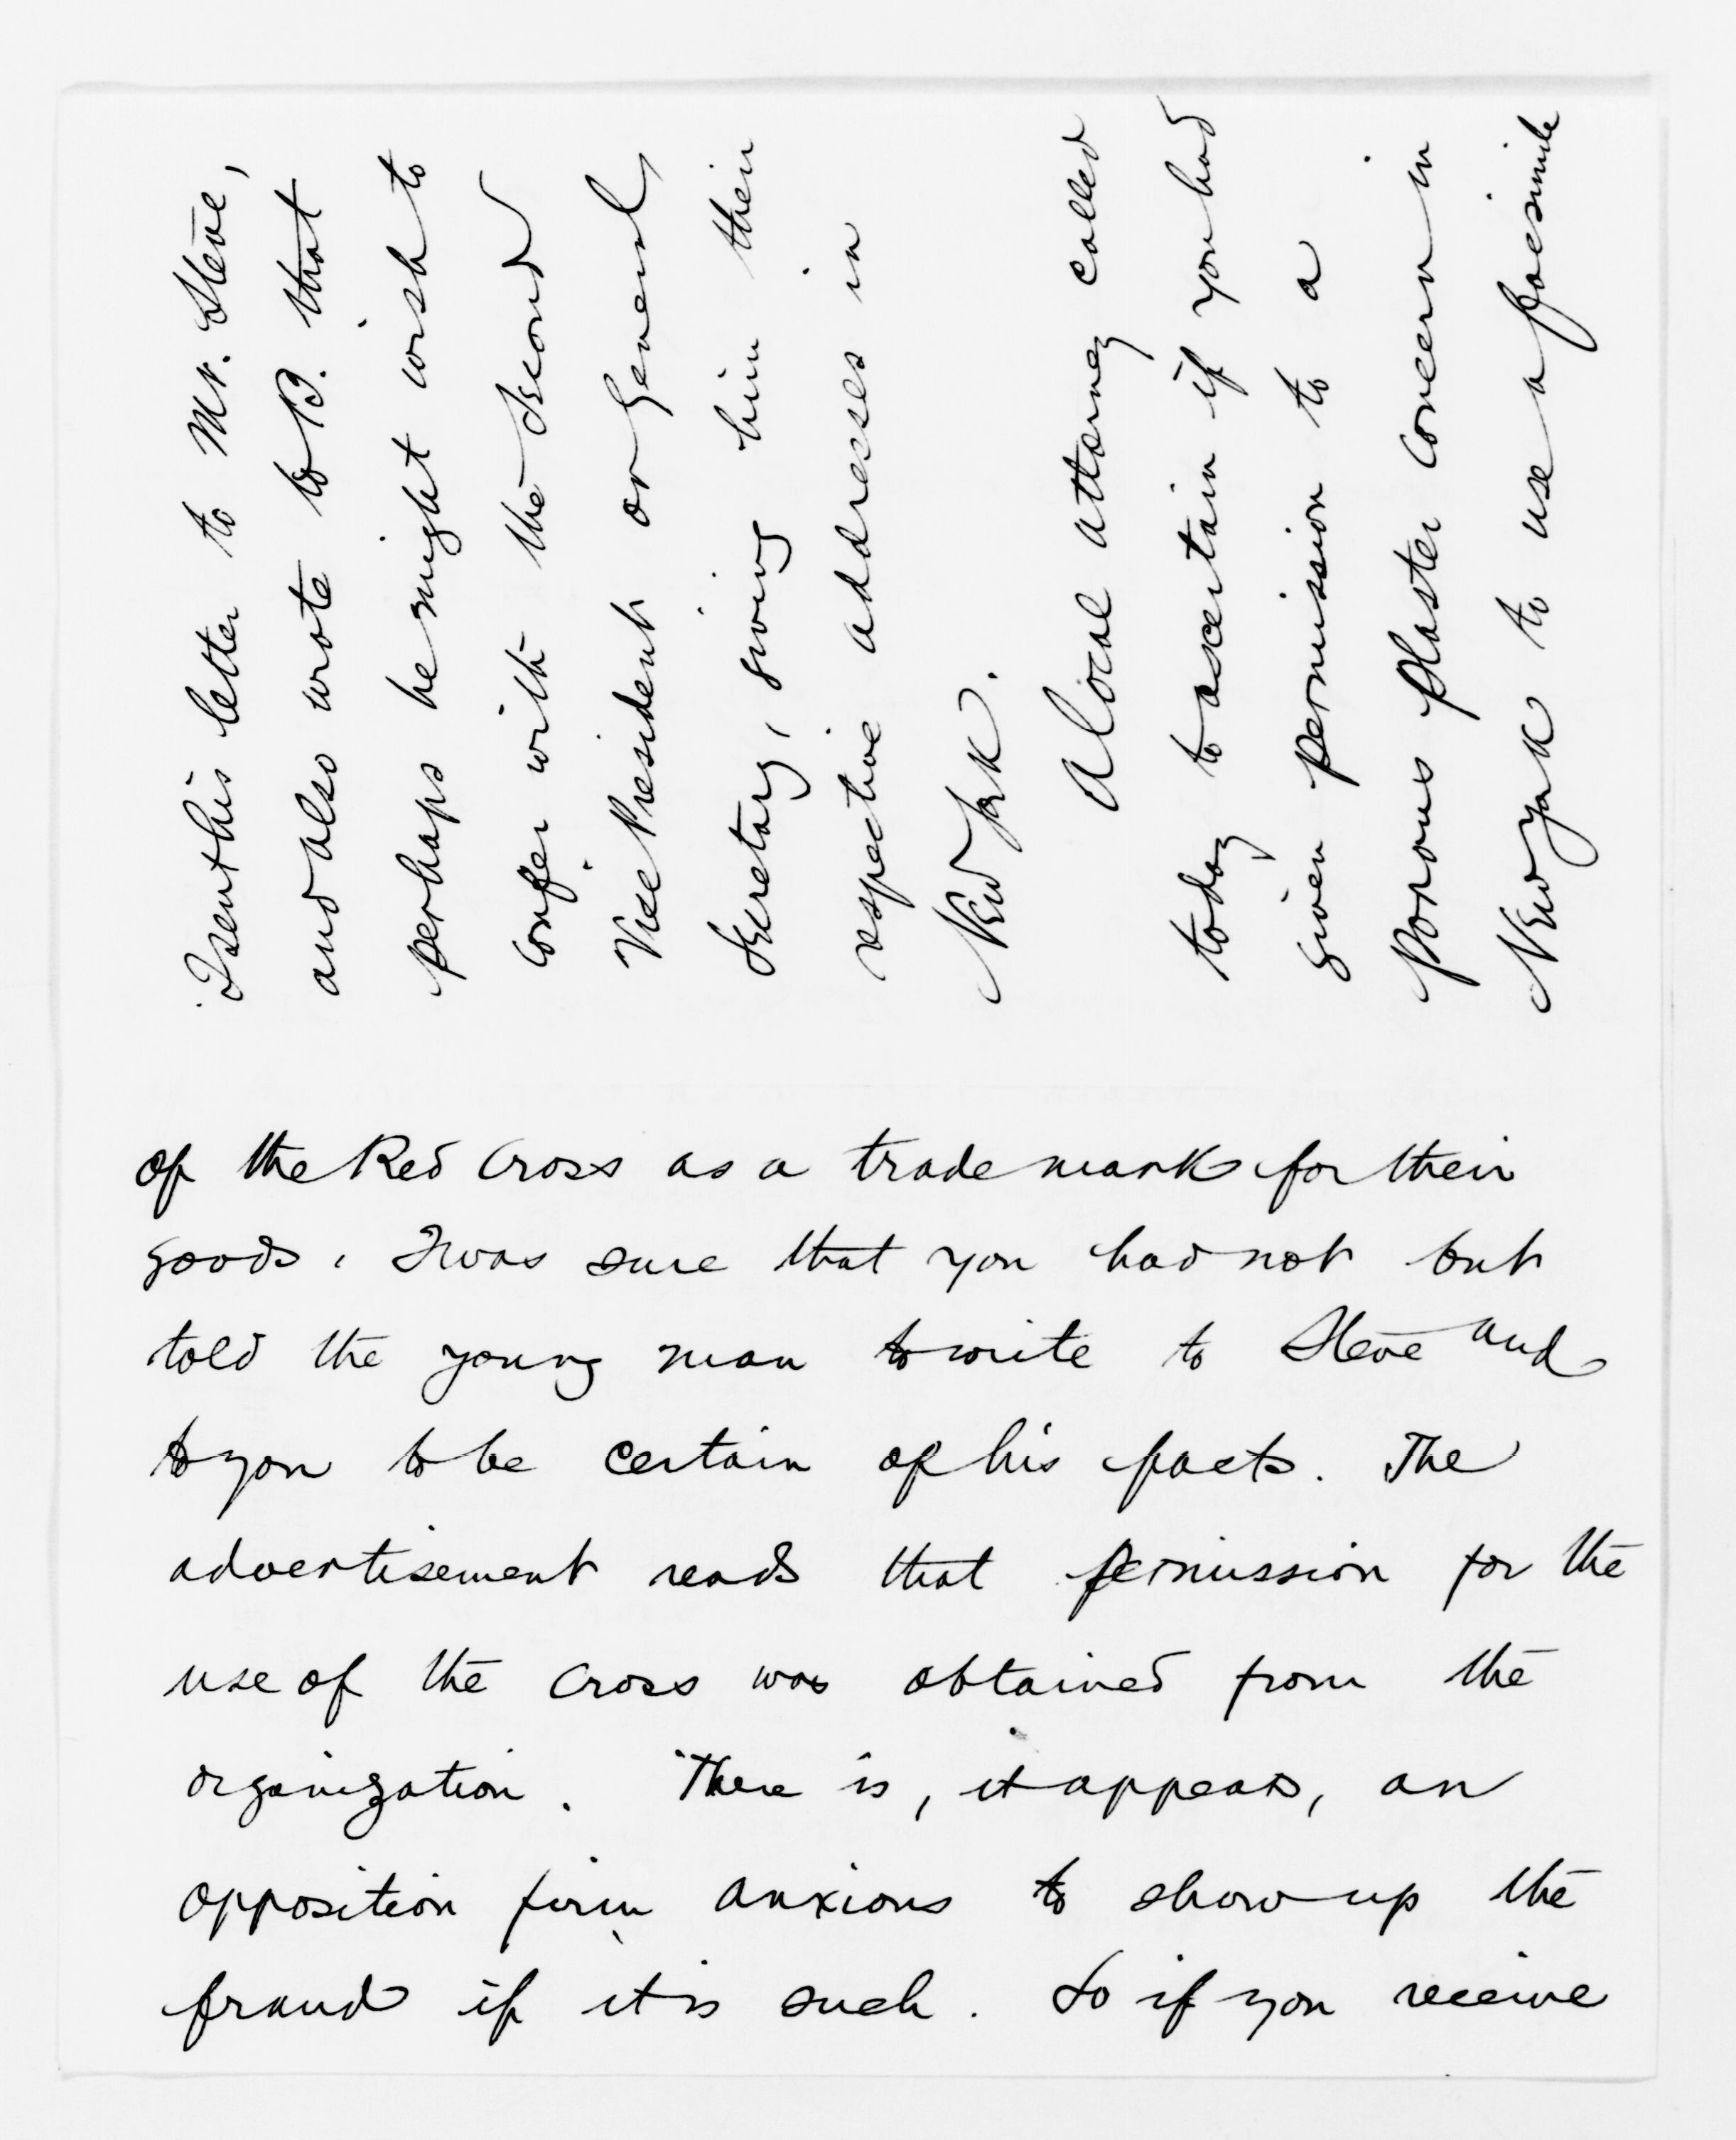 I sent his letter to Mr. Steve,
and also wrote to B. that
perhaps he might wish to
confer with the Second
Vice President or General
Secretary, giving him their
respective addresses in
New York.
A local attorney called
today to ascertain if you had
given permission to a
porous plaster concern in
New York to use a facsimile
of the Red Cross as a trade mark for their
goods. I was sure that you had not but
told the young man to write to Steve and
to you to be certain of his facts. The
advertisement reads that permission for the
use of the cross was obtained from the
organization. There is, it appears, an
opposition firm anxious to show up the
fraud if it is such. So if you receive